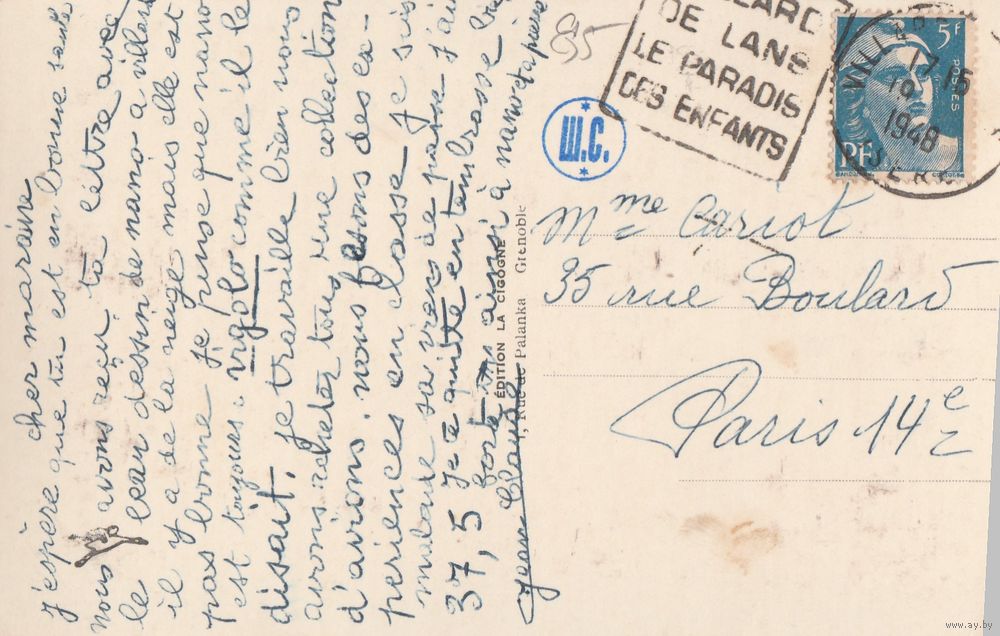 cher maraine
j'espère que tu est en bonne santé
nous avons reçu ta lettre avec
le beau dessin de nano à villard
il y a de la neige mais elle est
pas bonne je pense que nano
est toujours rigolo comme il le
disait. je travaille bien nous
avons acheter tous une collection
d'avions. nous fesons des ex-
periences en classe je suis
malade sa vien de passé j'ai
37,5 je te quitte en t'embrasse
ainsi à nano
Jean Claude
ÉDITION LA CIGOGNE
1, Rue de Palanka Grenoble
85
LARD
DE LANS
LE PARADIS
DES ENFANTS
VILLARD
17 15
1948
ISERE
5F
POSTES
RF
Ш.С.
Mme Carrot
35 rue Boulard
Paris 14e
www.ay.by